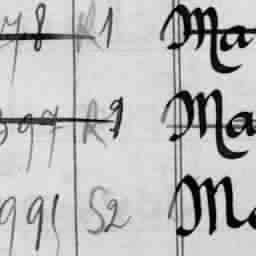 78 R1 Ma
397 R9 Ma
991 S2 Ma